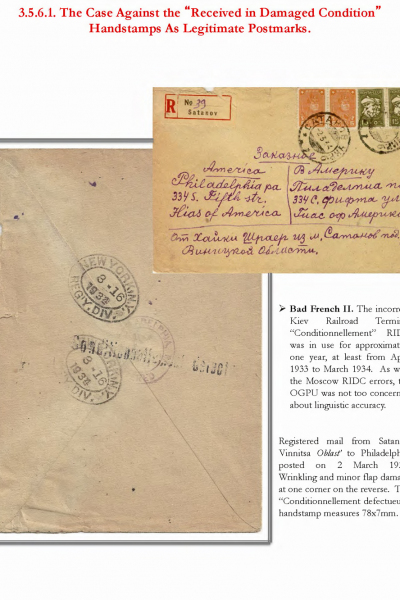 3.5.6.1. The Case Against the “Received in Damaged Condition”
Handstamps As Legitimate Postmarks.
R
No 39
Satanov
Заказное
America
Philadelphia pa
334 S. Fifth str.
Hias of America
В Америку
Пиладелпиа
334 С. фифта ул
Гиас оф Америка
от Хайки Шраер из м. Сатанов под.
Виницкой Области.
NEW YORK, N.Y.
8-16
1933
REG'Y. DIV.
8-16
1933
REG'Y. DIV.
➤ Bad French II. The incorre
Kiev Railroad Termin
“Conditionnellement” RID
was in use for approximat
one year, at least from Ap
1933 to March 1934. As w
the Moscow RIDC errors, t
OGPU was not too concern
about linguistic accuracy.
Registered mail from Satan
Vinnitsa Oblast’ to Philadelph
posted on 2 March 19
Wrinkling and minor flap dama
at one corner on the reverse. T
“Conditionnellement defectueu
handstamp measures 78x7mm.